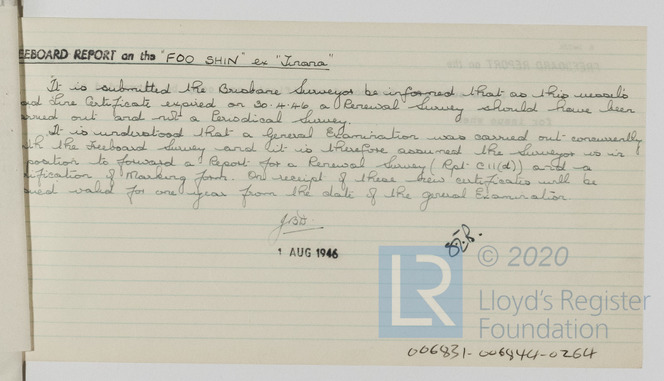 EEBOARD REPORT on the "FOO SHIN" ex "Tinana"
It is submitted the Brisbane Surveyor be informed that as this vessel's
ad Line Certificate expired on 30.4.46 a Renewal Survey should have been
rried out and not a Periodical Survey.
It is understood that a General Examination was carried out concurrently
th the Freeboard Survey and it is therefore assumed the Surveyor is in
position to forward a Report for a Renewal Survey (Rpt C11(d)) and a
ification of Marking form. On receipt of these new certificates will be
sued valid for one year from the date of the general Examination.
1 AUG 1946
LR
© 2020
Lloyd's Register
Foundation
006831-006844-0264